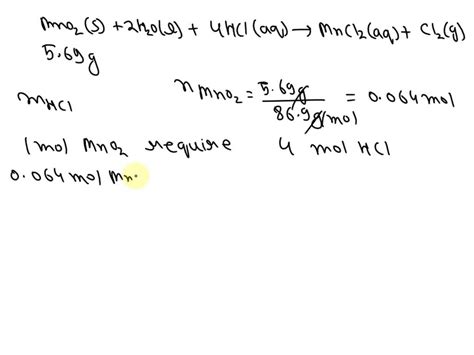 MnO₂(s) + 2H₂O(l) + 4HCl(aq) → MnCl₂(aq) + Cl₂(g)
5.69g
m HCl
n MnO₂ = 5.69g / 86.9g/mol = 0.064mol
1 mol MnO₂ require 4 mol HCl
0.064 mol Mn